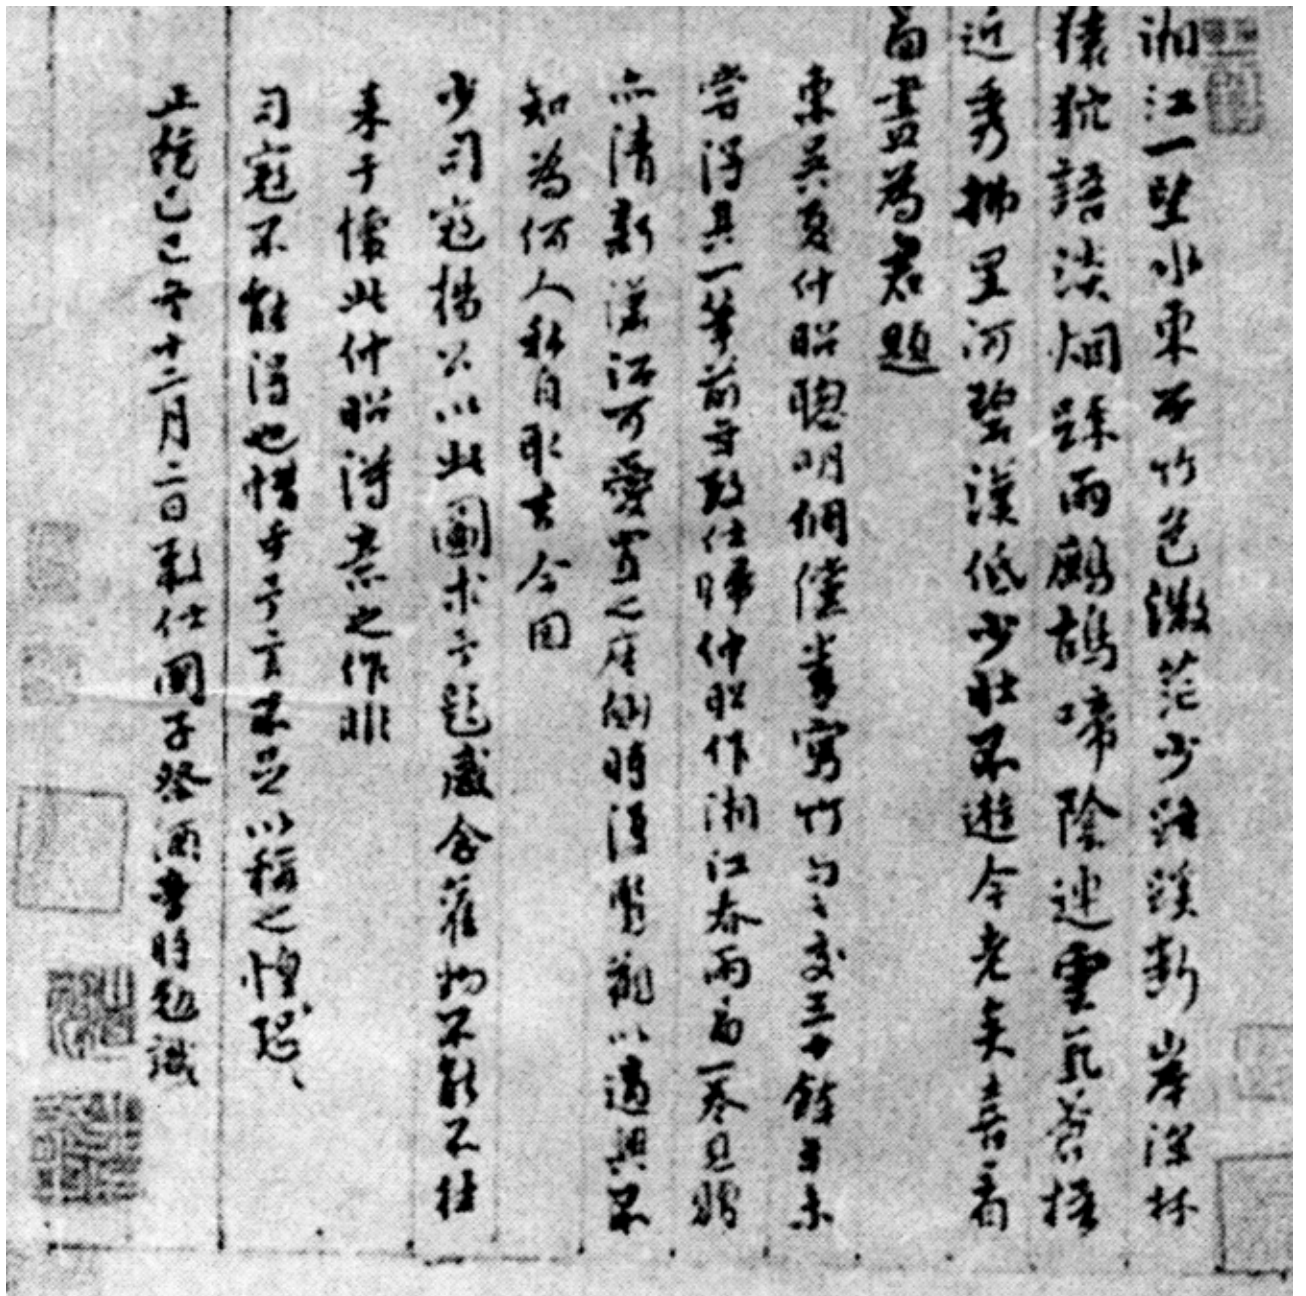 湘江一望水東西竹色微茫少路蹊斷岸深林
猿狖語淡烟踈雨鷓鴣啼陰連雲氣蒼梧
近秀拂星河碧漢低少壯不遊今老矣喜看
圖畫為君題
東吳夏仲昭聰明倜儻善寫竹與之交三十餘年未
嘗得其一筆前年致仕歸仲昭作湘江春雨圖一卷見贈
亦清新灑洒可愛置之座側時復覽觀以適興不
知為何人私自取去今因
少司寇楊公以此圖求予題感念舊物不能不往
来于懷此仲昭得意之作非
司寇不能得也惜乎予言不足以稱之愧恧愧恧
正統己巳年十二月二日致仕國子祭酒李時勉識